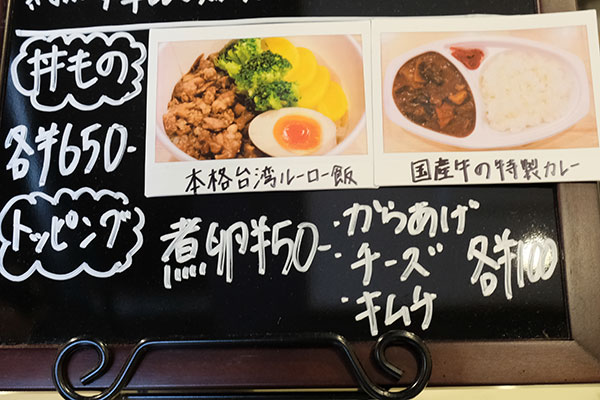 丼もの
各¥650-
本格台湾ルーロー飯
国産牛の特製カレー
トッピング
煮卵¥50-
・からあげ
・チーズ
・キムチ
各¥100